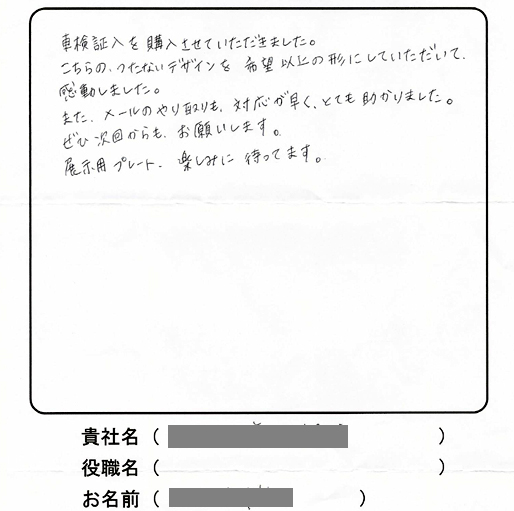 車検証入を購入させていただきました。
こちらの、つたないデザインを 希望以上の形にしていただいて、
感動しました。
また、メールのやり取りも、対応が早く、とても助かりました。
ぜひ次回からも、お願いします。
展示用プレート、楽しみに待ってます。
貴社名（　　　）
役職名（　　　）
お名前（　　　）